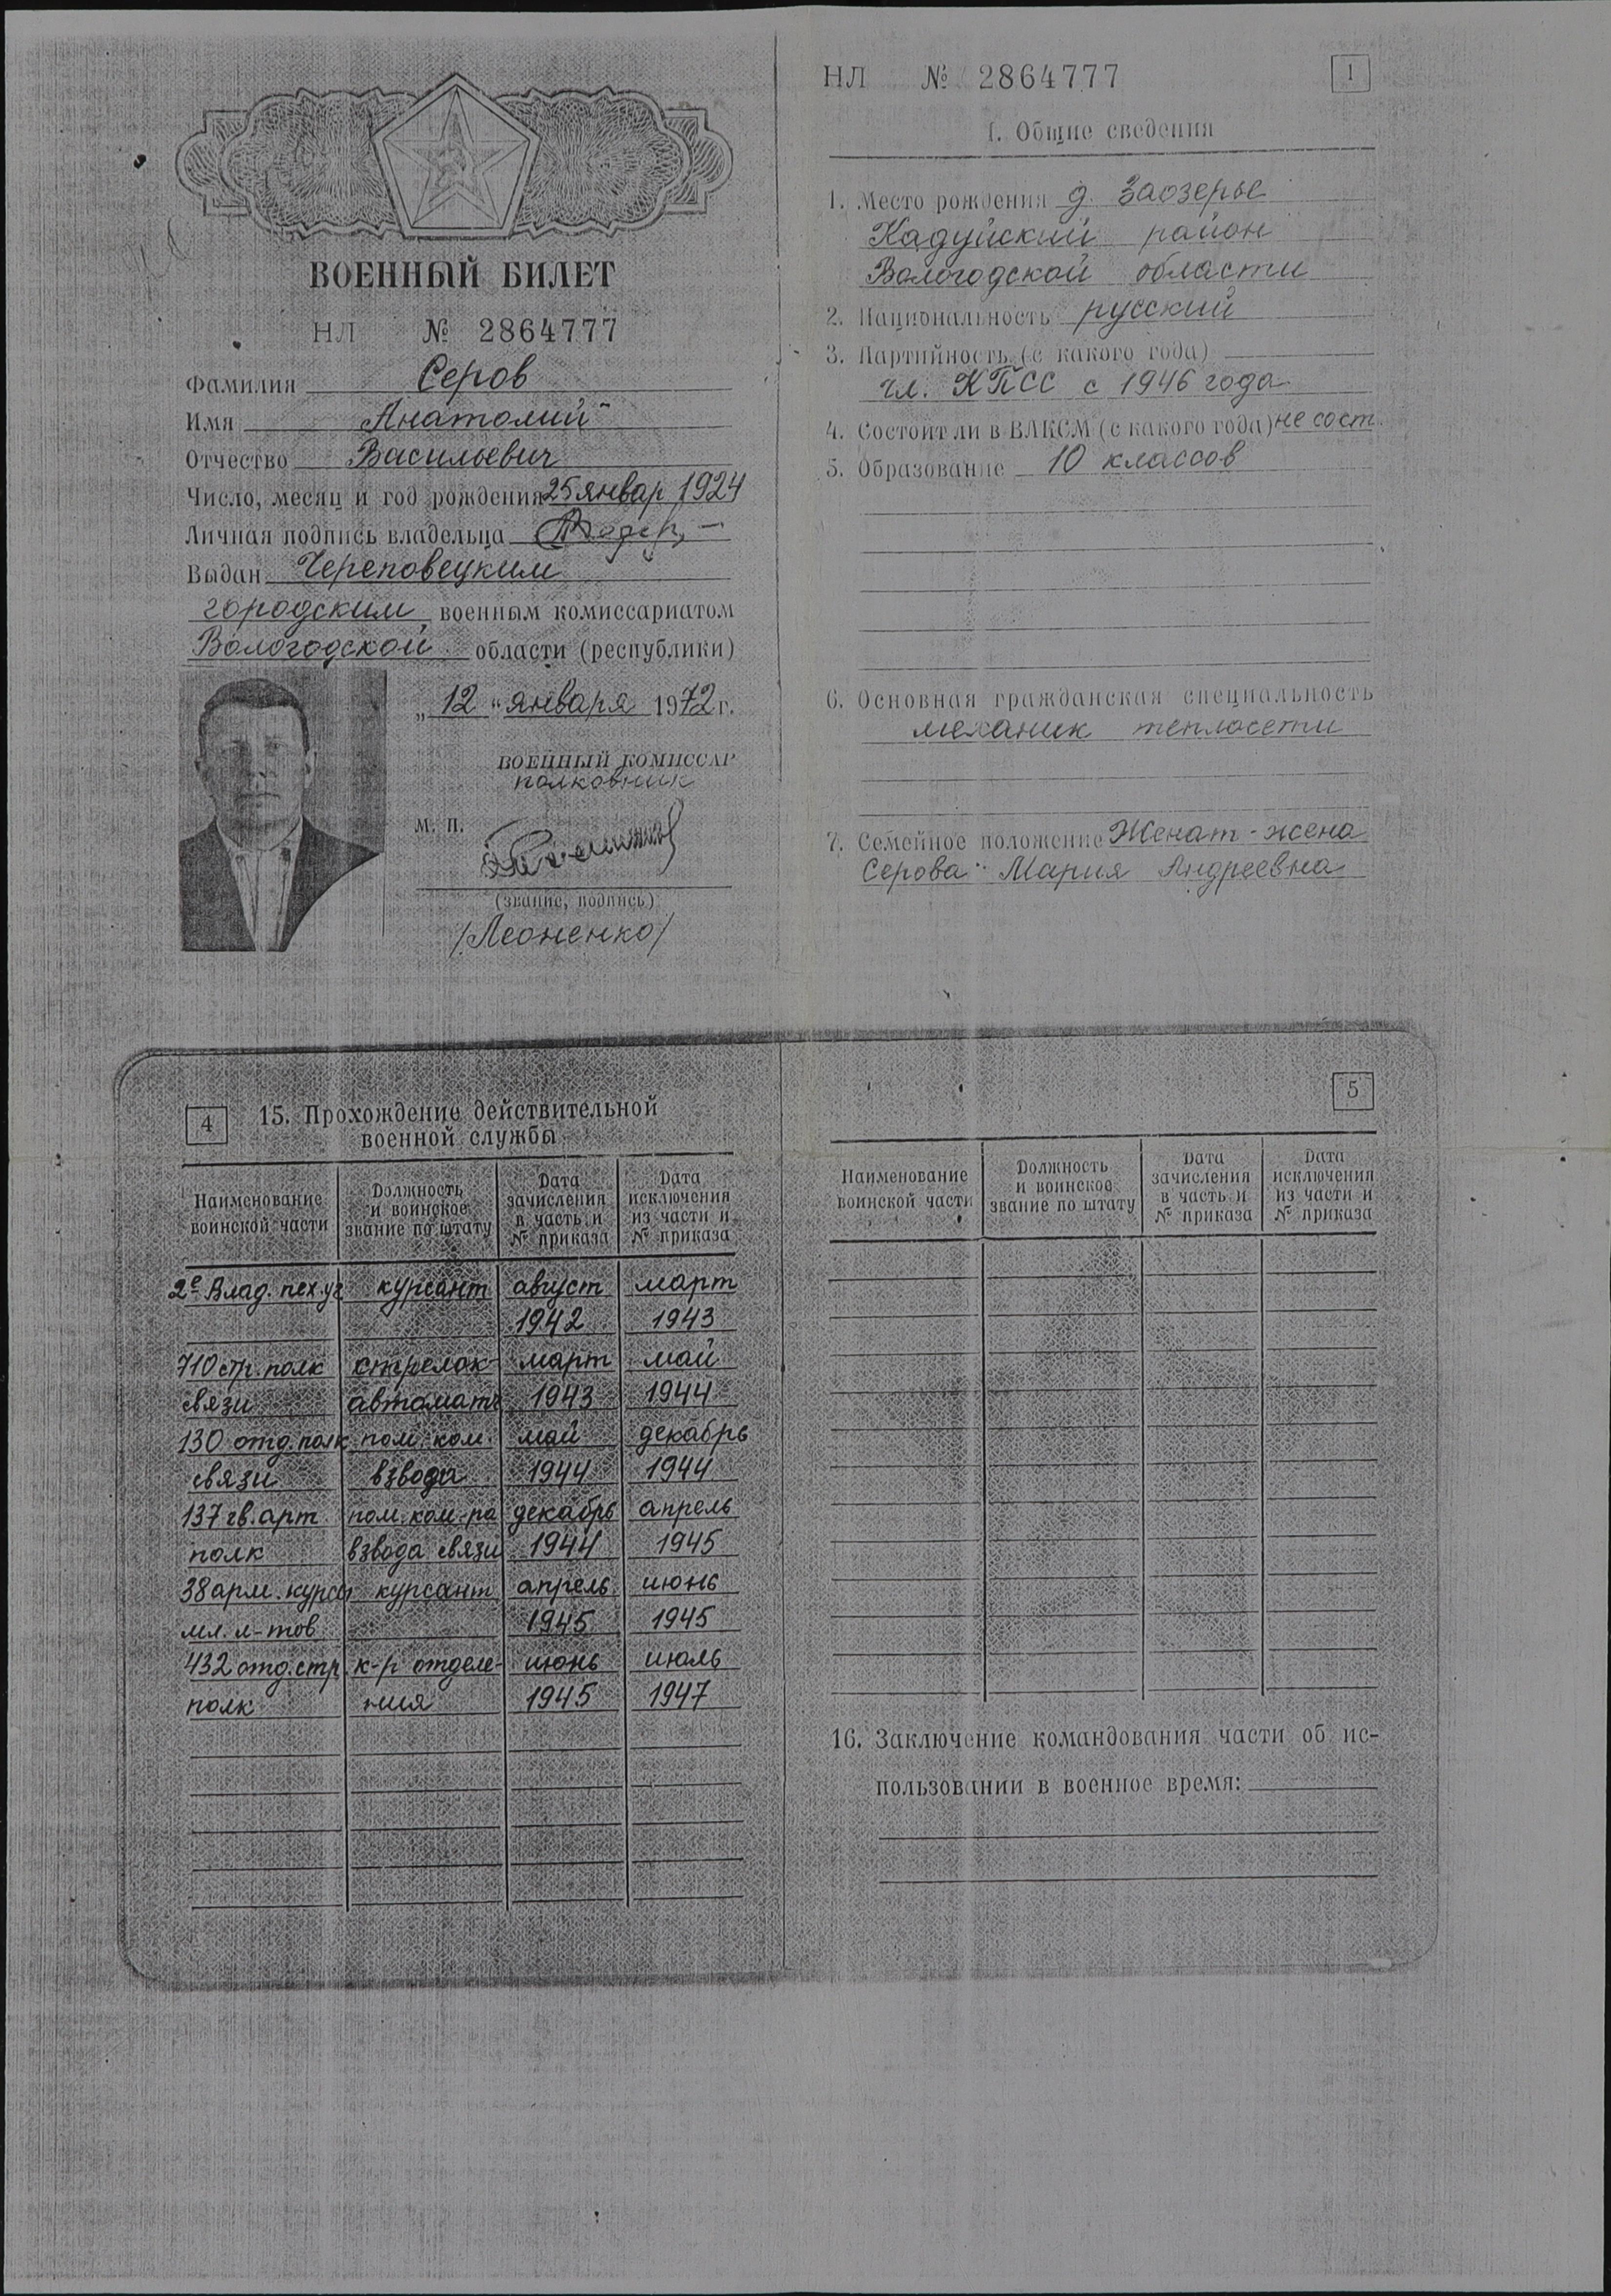 ВОЕННЫЙ БИЛЕТ
НЛ № 2864777
Фамилия Серов
Имя Анатолий
Отчество Васильевич
Число, месяц и год рождения 25 январ 1924
Личная подпись владельца
Выдан Череповецким
городским военным комиссариатом
Вологодской области (республики)
„12“ января 1972 г.
ВОЕННЫЙ КОМИССАР
полковник
М. П.
(звание, подпись)
/Леоненко/
НЛ № 2864777
1
I. Общие сведения
1. Место рождения д. Заозерье
Кадуйский район
Вологодской области
2. Национальность русский
3. Партийность (с какого года)
чл. КПСС с 1946 года
4. Состоит ли в ВЛКСМ (с какого года) не сост.
5. Образование 10 классов
6. Основная гражданская специальность
механик теплосети
7. Семейное положение Женат - жена
Серова Мария Андреевна
4
15. Прохождение действительной
военной службы
Наименование воинской части
Должность и воинское звание по штату
Дата зачисления в часть и № приказа
Дата исключения из части и № приказа
2е Влад. пех. уч курсант август март
1942 1943
710 стр. полк стрелок- март май
связи автоматч 1943 1944
130 отд. полк пом. ком. май декабрь
связи взвода 1944 1944
137 гв. арт. пом. ком-ра декабрь апрель
полк взвода связи 1944 1945
38 арм. курсы курсант апрель июнь
мл. л-тов 1945 1945
432 отд. стр к-р отделе- июнь июль
полк ния 1945 1947
5
Наименование воинской части
Должность и воинское звание по штату
Дата зачисления в часть и № приказа
Дата исключения из части и № приказа
16. Заключение командования части об ис-
пользовании в военное время: